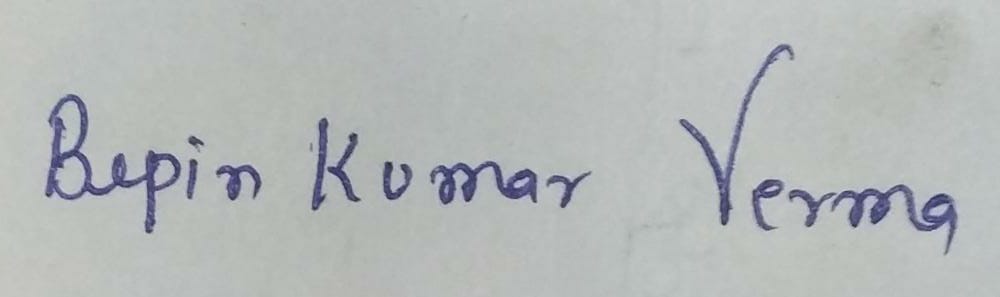 Bepin Kumar Verma